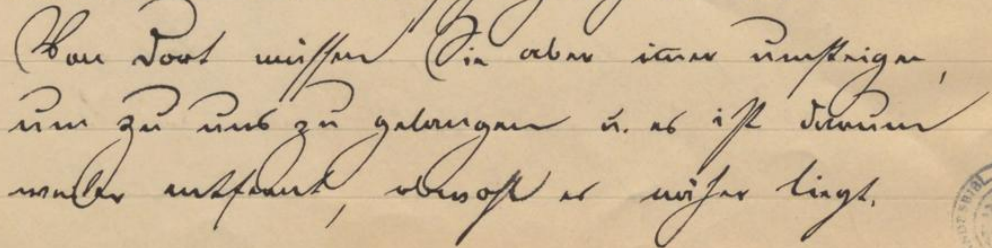 Von dort müssen Sie aber im̅er umsteigen,
um zu uns zu gelangen u. es ist darum
weiter entfernt, obwohl es näher liegt.